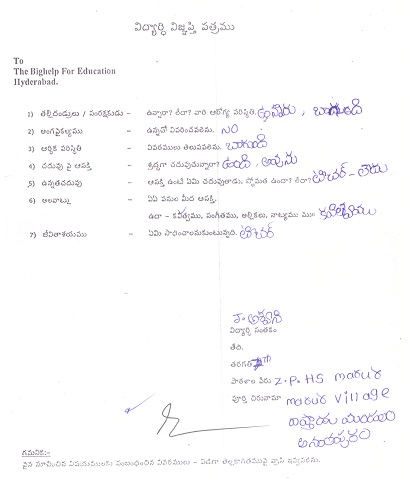 విద్యార్ధి విజ్ఞప్తి పత్రము
To
The Bighelp For Education
Hyderabad.
1) తల్లిదండ్రులు / సంరక్షకుడు - ఉన్నారా? లేదా? వారి ఆరోగ్య పరిస్థితి ఉన్నారు, బాగుంది
2) అంగవైకల్యము - ఉన్నచో వివరించవలెను. NO
3) ఆర్ధిక పరిస్థితి - వివరములు తెలుపవలెను. బాగుంది
4) చదువు పై ఆసక్తి - శ్రద్ధగా చదువుచున్నారా? ఉంది, అవును
5) ఉన్నతచదువు - ఆసక్తి ఉంటే ఏమి చదువుతాడు. స్తోమత ఉందా? లేదా? టీచర్ - లేదు
6) అలవాట్లు - ఏఏ పనుల మీద ఆసక్తి.
ఉదా - కవిత్వము, సంగీతము, అల్లికలు, నాట్యము
7) జీవితాశయము - ఏమి సాధించాలనుకుంటున్నది. టీచర్
విద్యార్ధి సంతకం
తేది.
తరగతి 7th
పాఠశాల పేరు Z.P.HS marur
పూర్తి చిరునామా marur village
మండలం
అనంతపురం
గమనిక:-
పైన సూచించిన విషయములకు సంబంధించిన వివరములు - విడిగా తెల్లకాగితముపై వ్రాసి ఇవ్వవలెను.